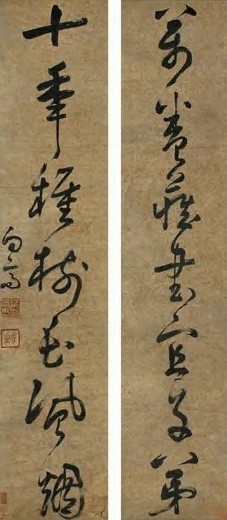 萬卷藏書宜子弟
十年種樹長風烟
向高